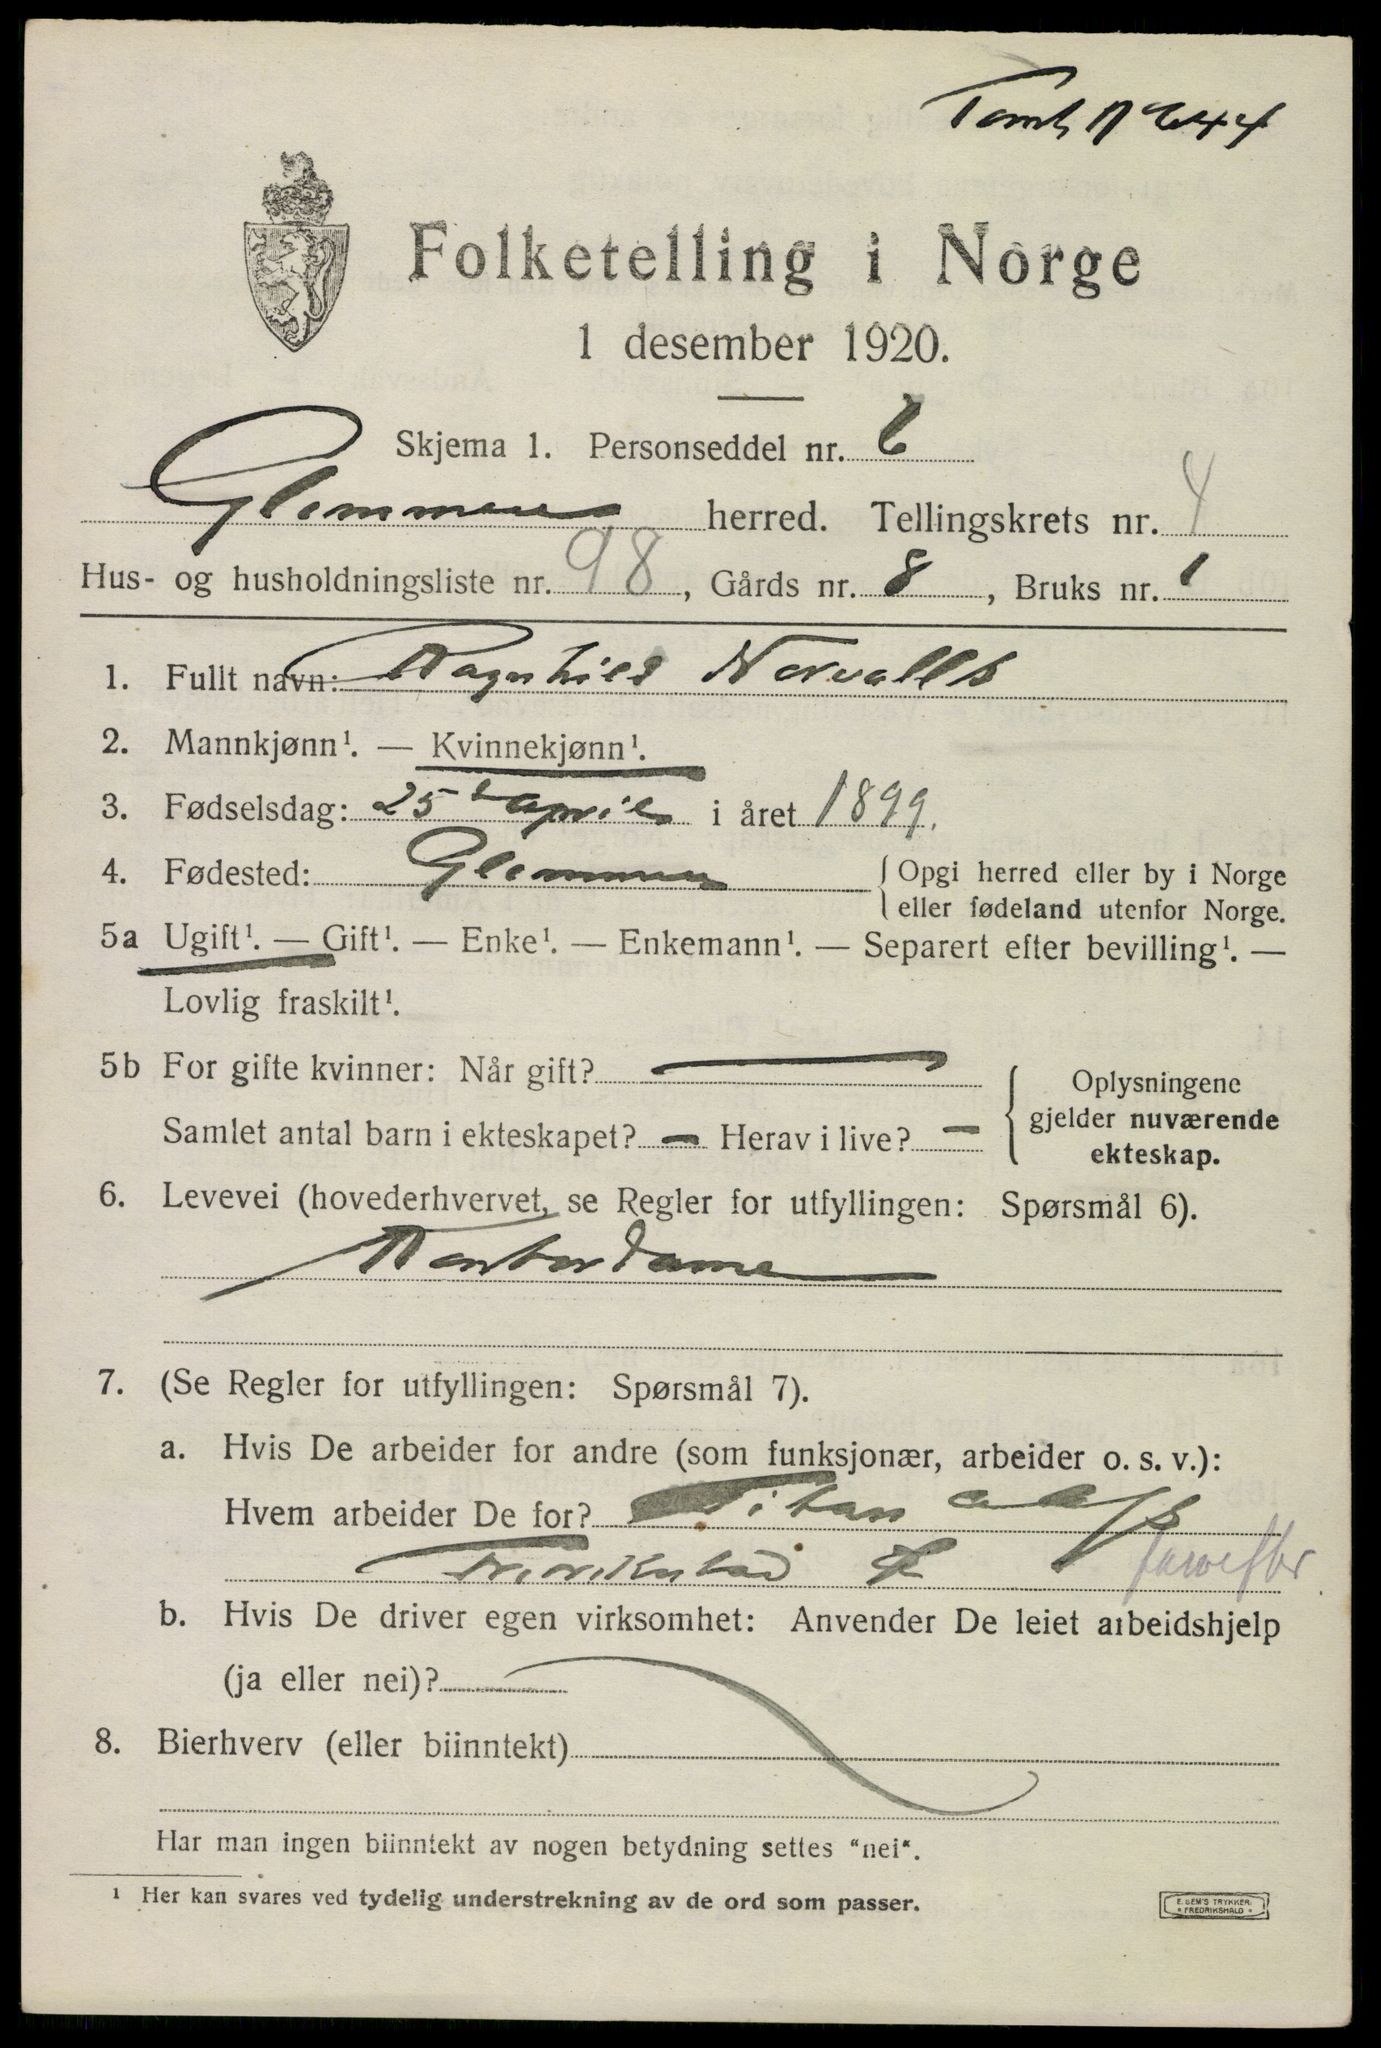 Tomt N 244
Folketelling i Norge
1 desember 1920.
Skjema 1. Personseddel nr. 6
Glemmen herred. Tellingskrets nr. 4
Hus- og husholdningsliste nr. 98, Gårds nr. 8, Bruks nr. 1
1. Fullt navn: Ragnhild
2. Mannkjønn¹. — Kvinnekjønn¹.
3. Fødselsdag: 25 april i året 1899.
4. Fødested: Glemmen { Opgi herred eller by i Norge
eller fødeland utenfor Norge.
5a Ugift¹. — Gift¹. — Enke¹. — Enkemann¹. — Separert efter bevilling¹. —
Lovlig fraskilt¹.
5b For gifte kvinner: Når gift? —
Samlet antal barn i ekteskapet? — Herav i live? —
{ Oplysningene
gjelder nuværende
ekteskap.
6. Levevei (hovederhvervet, se Regler for utfyllingen: Spørsmål 6).
Kontordame
7. (Se Regler for utfyllingen: Spørsmål 7).
a. Hvis De arbeider for andre (som funksjonær, arbeider o. s. v.):
Hvem arbeider De for? Titan A/S
Fredrikstad farvefbr
b. Hvis De driver egen virksomhet: Anvender De leiet arbeidshjelp
(ja eller nei)?
8. Bierhverv (eller biinntekt)
Har man ingen biinntekt av nogen betydning settes "nei".
¹ Her kan svares ved tydelig understrekning av de ord som passer.
E. SEM'S TRYKKERI
FREDRIKSHALD